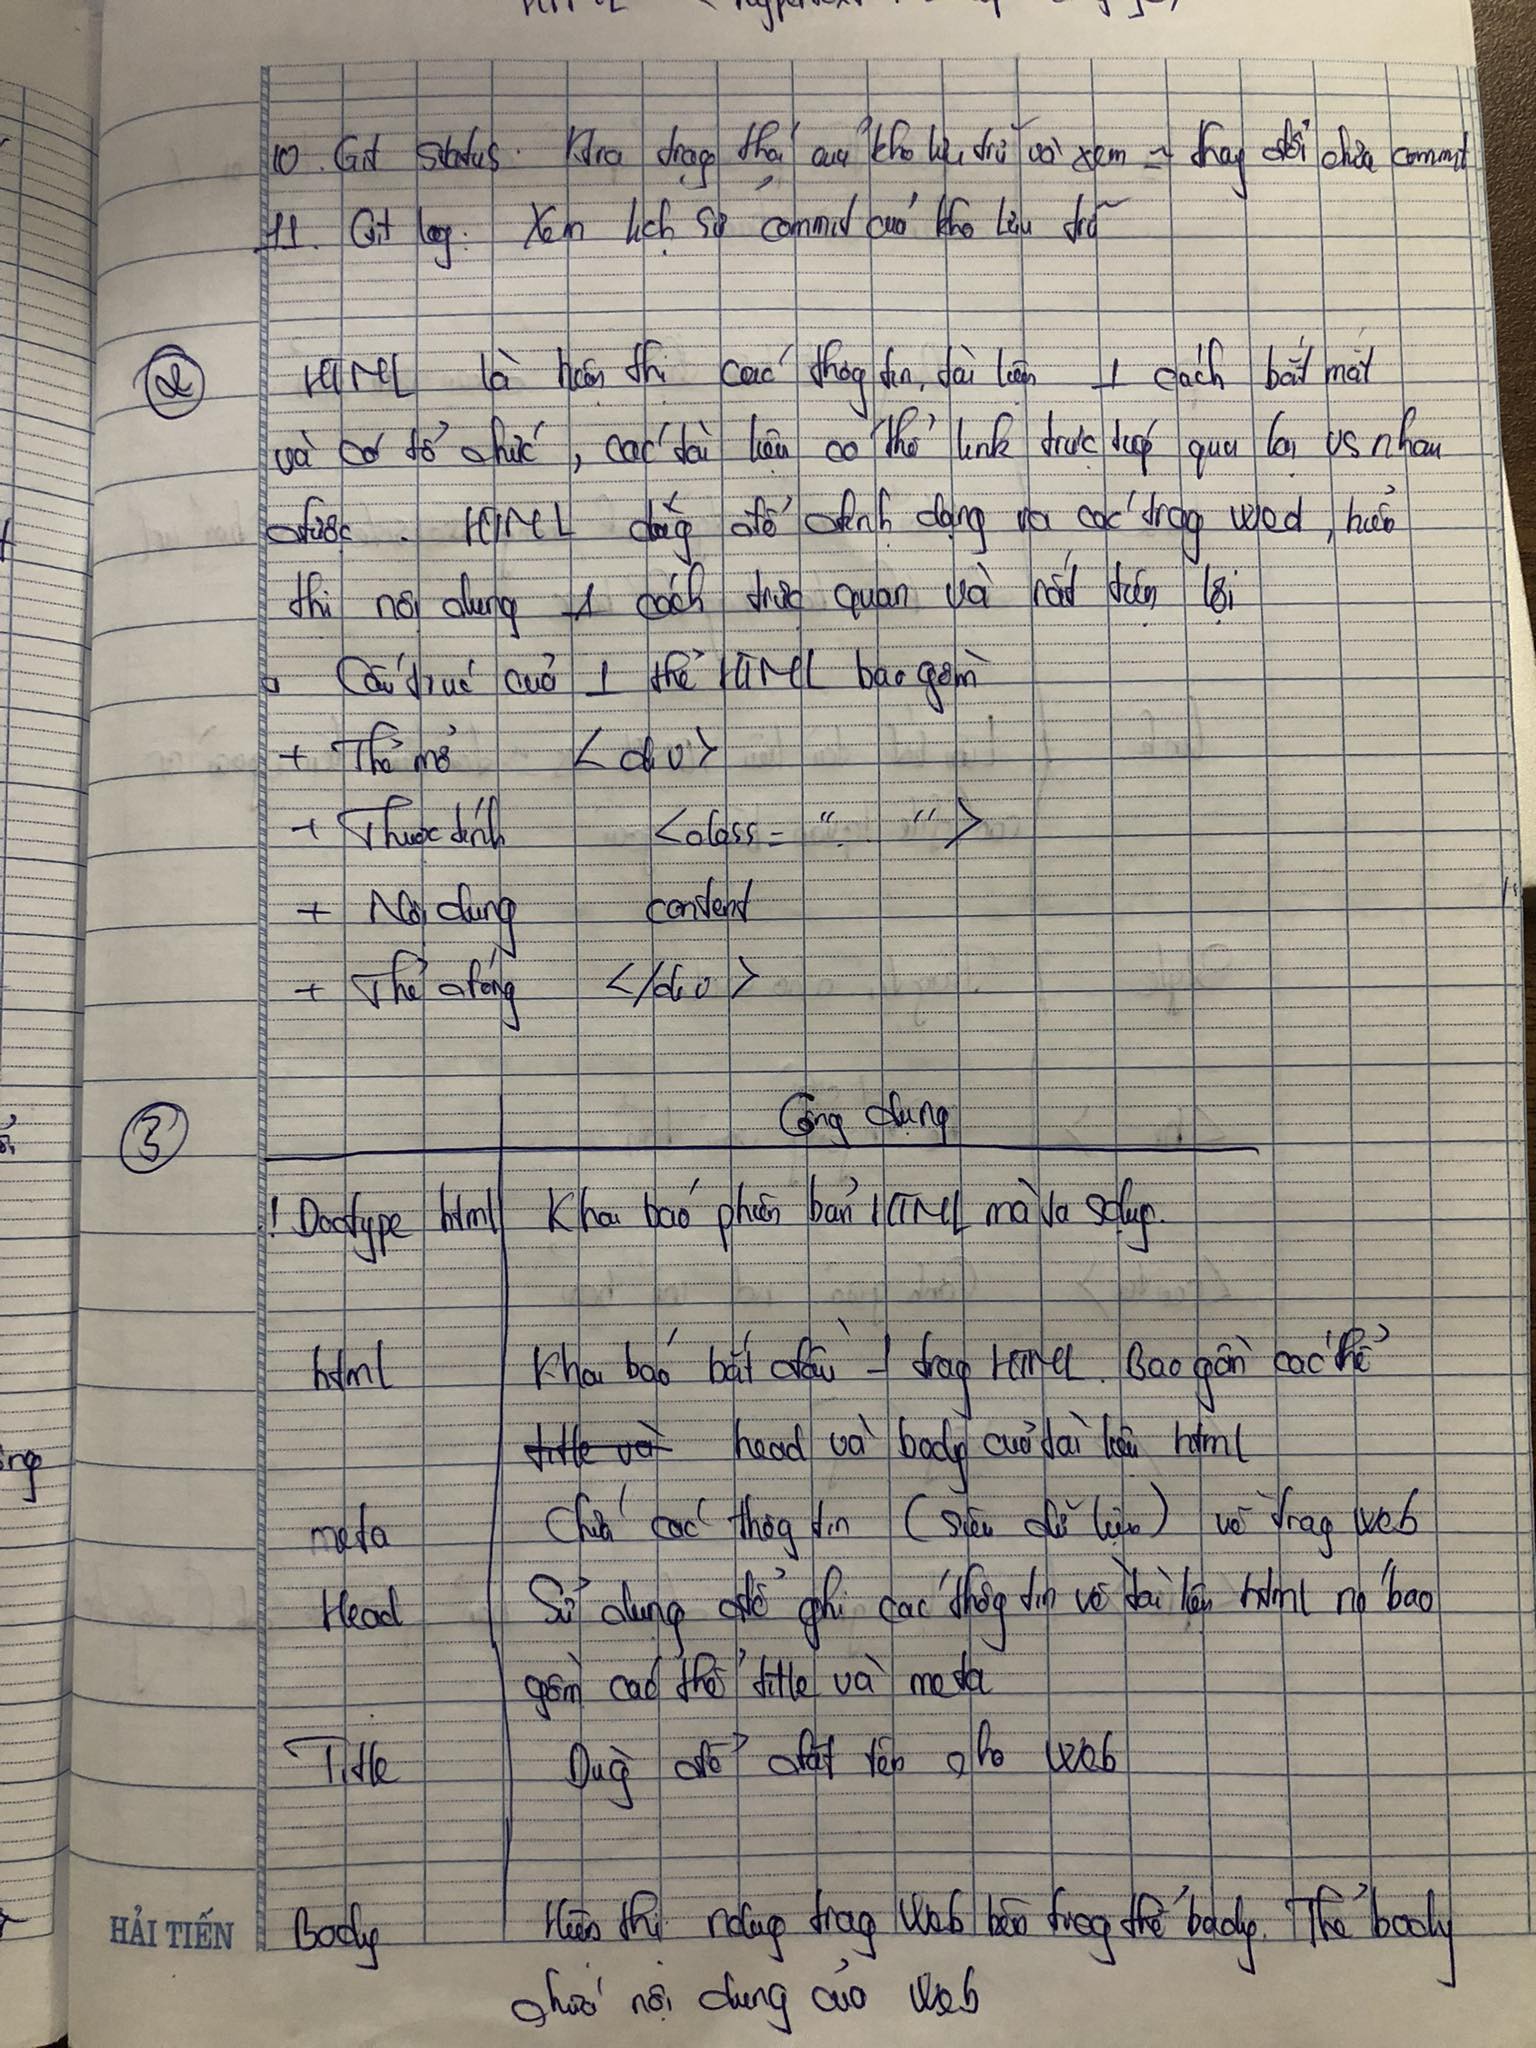 10. Git status. Ktra trạg thái của kho lưu trữ và xem thay đổi chưa commit
11. Git log: Xem lịch sử commit của kho lưu trữ
② HTML là hiển thị các thôg tin, tài liệu 1 cách bắt mắt
và có tổ chức, các tài liệu có thể link trực tiếp qua lại vs nhau
được. HTML để định dạng ra các trag wed, hiển
thị nội dung 1 cách trực quan và rất tiện lợi
Cấu trúc của 1 thẻ HTML bao gồm
+ Thẻ mở <div>
+ Thuộc tính <class= " ">
+ Nội dung content
+ Thẻ đóng </div>
③ Công dụng
! Doctype html Khai báo phiên bản HTML mà ta sdụg.
html Khai báo bắt đầu 1 trag HTML. Bao gồm các thẻ
title và head và body của tài liệu html
meta Chứa các thôg tin (siêu dữ liệu) về trag web
Head Sử dụng để ghi các thôg tin về tài liệu html nó bao
gồm các thẻ title và meta
Title Dùg để đặt tên cho Web
HẢI TIẾN Body Hiển thị ndug trag Web bên trog thẻ body. Thẻ body
chứa nội dung của Web